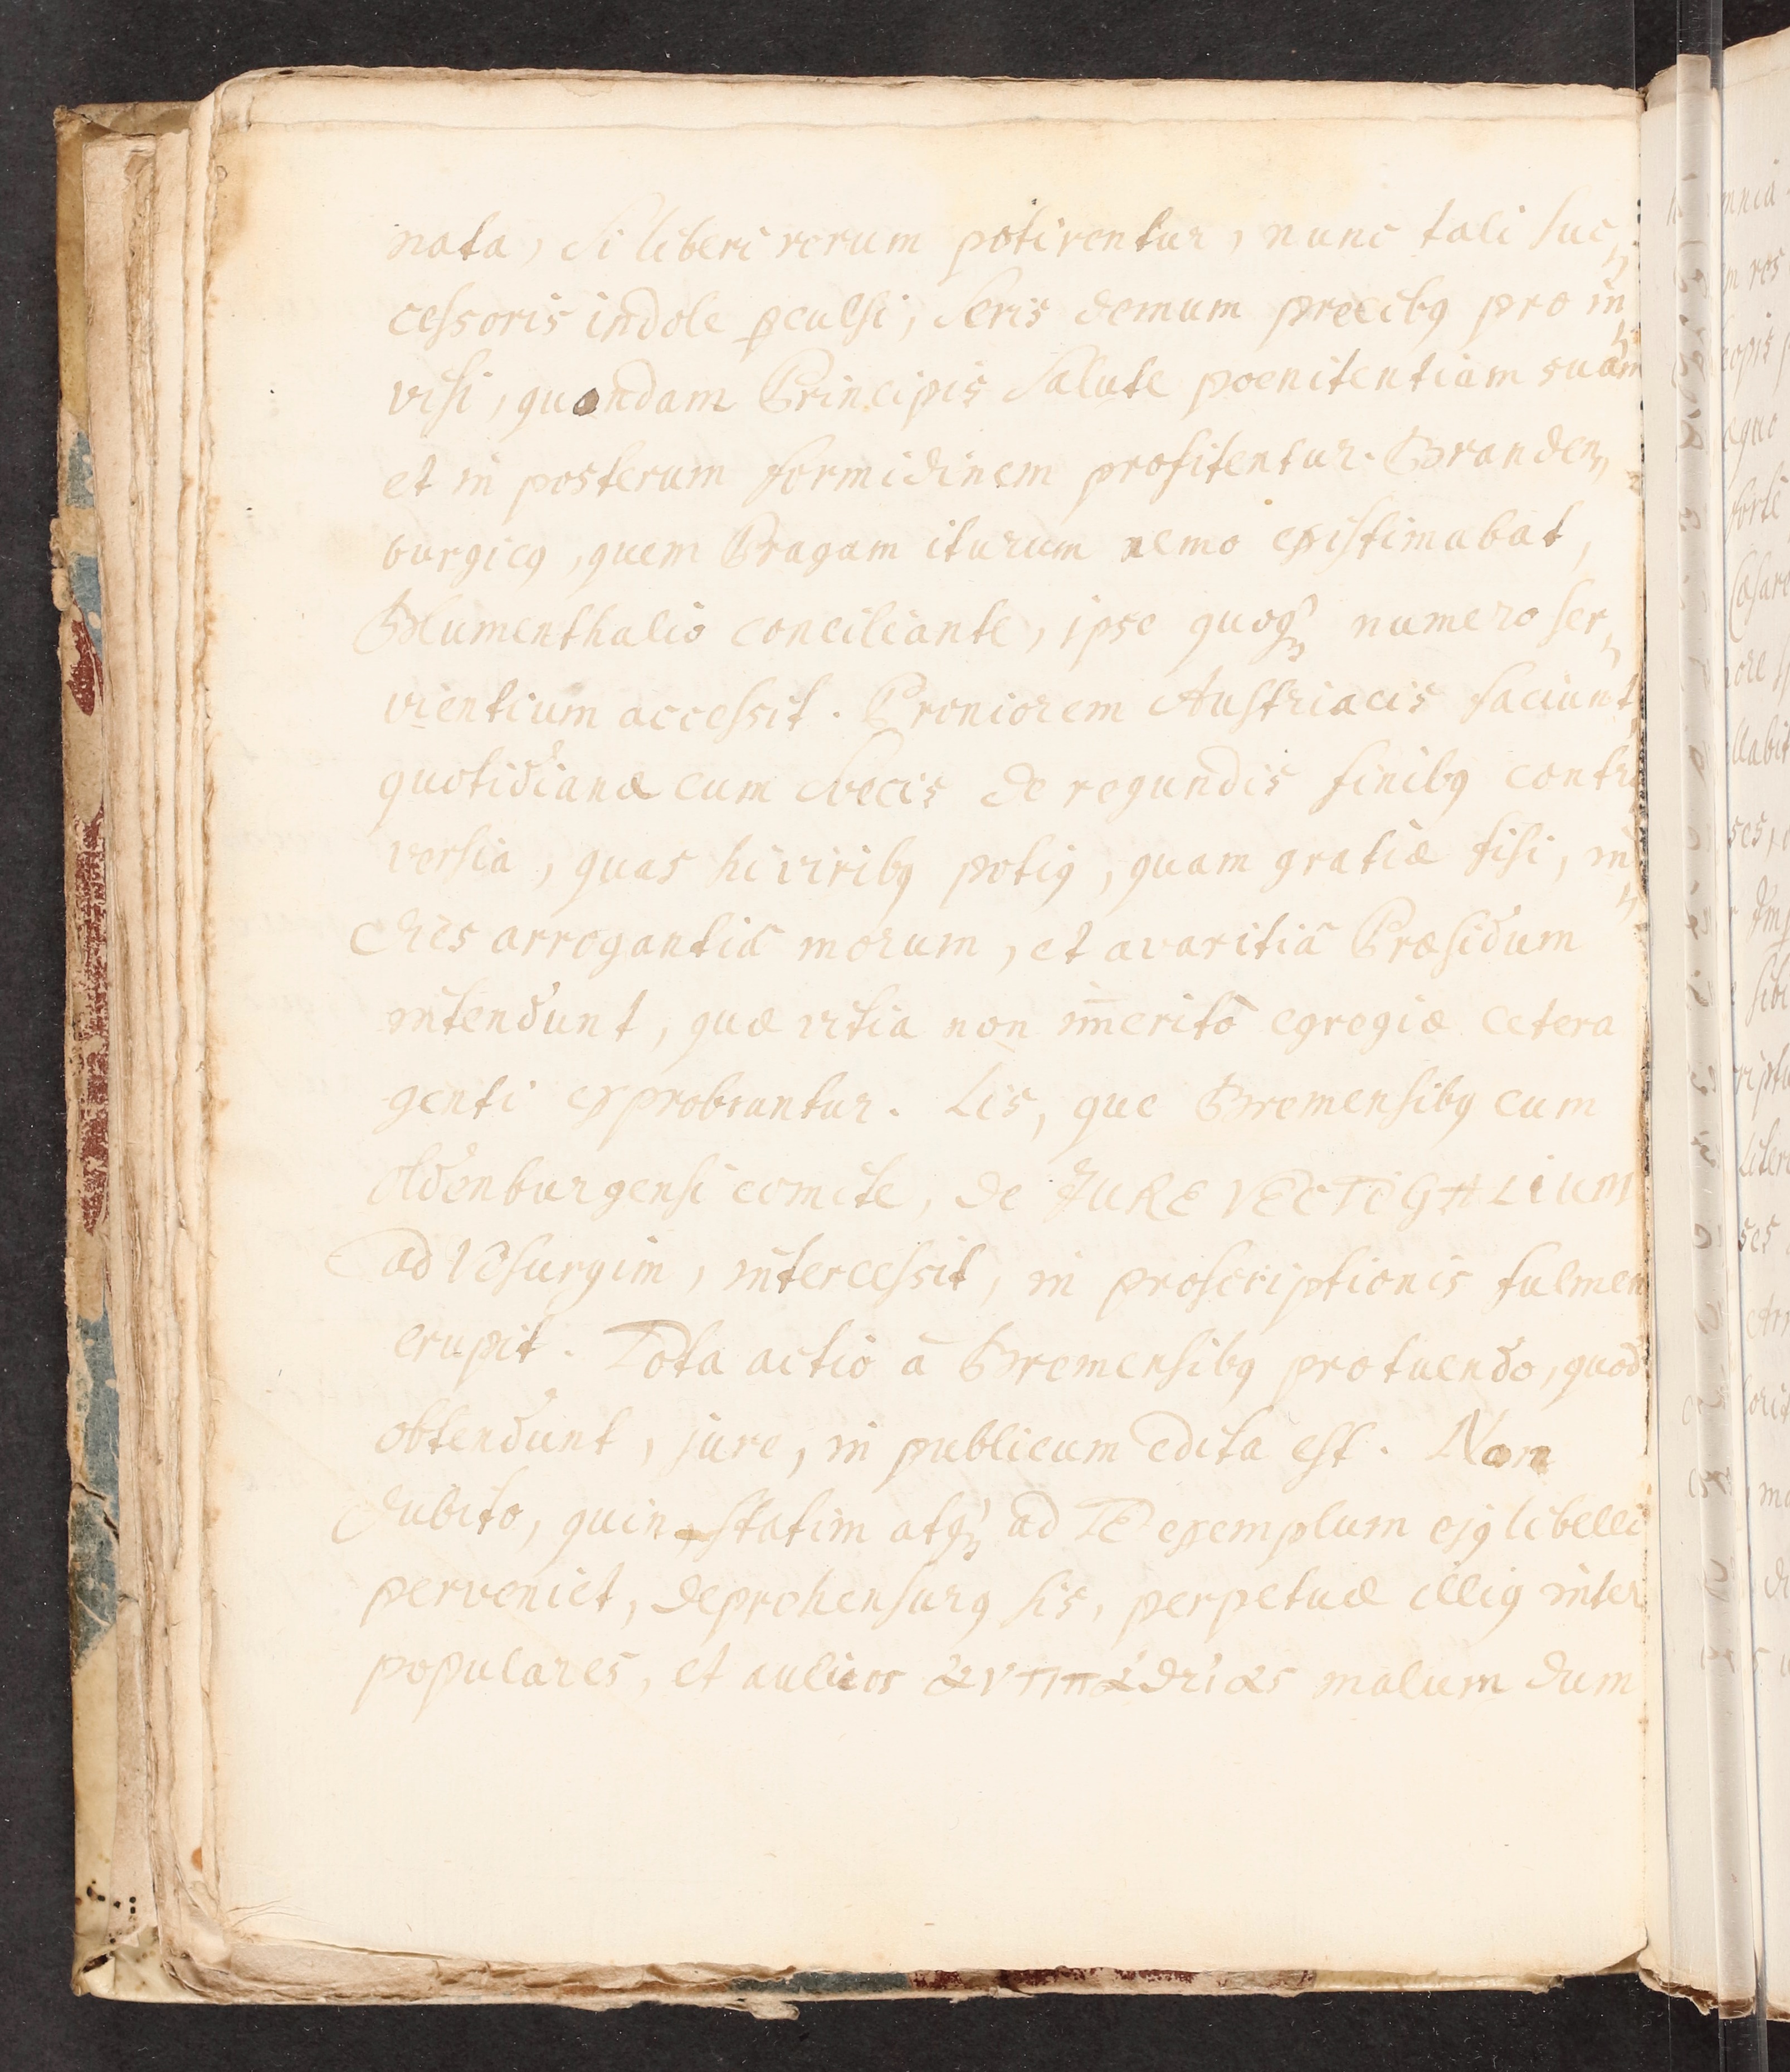 nata, si liberi rerum potirentur, nunc tali suc„
cessoris indole ꝑculsi, seris demum precibꝰ pro in„
visi, quondam Principis salute poenitentiam suam
et in posterum formidinem profitentur. Branden„
burgicꝰ, quem Pragam iturum nemo existimabat,
Blumenthalio conciliante, ipse quoqꝫ numero ser„
vientium accessit. Proniorem Austriacis faciunt,
quotidianæ cum Svecis de regundis finibꝰ contro
versia, quas hi viribꝰ potiꝰ, quam gratiæ fisi, in„
dies arrogantiâ morum, et avaritiâ Præsidum
intendunt, quæ vitia non im̅erito egregiæ cetera
genti exprobrantur. Lis, que Bremensibꝰ cum
Oldenburgensi comite, de JURE VECTIGALIUM
ad Visurgim, intercessit, in proscriptionis fulmen
erupit. Tota actio à Bremensibꝰ pro tuendo, quod
obtendunt, jure, in publicum edita est. Non
dubito, quin, statim atqꝫ ad TE exemplum ejꝰ libelli
perveniet, deprehensurꝰ sis, perpetuæ illiꝰ inter
populares, et aulicos malum dum